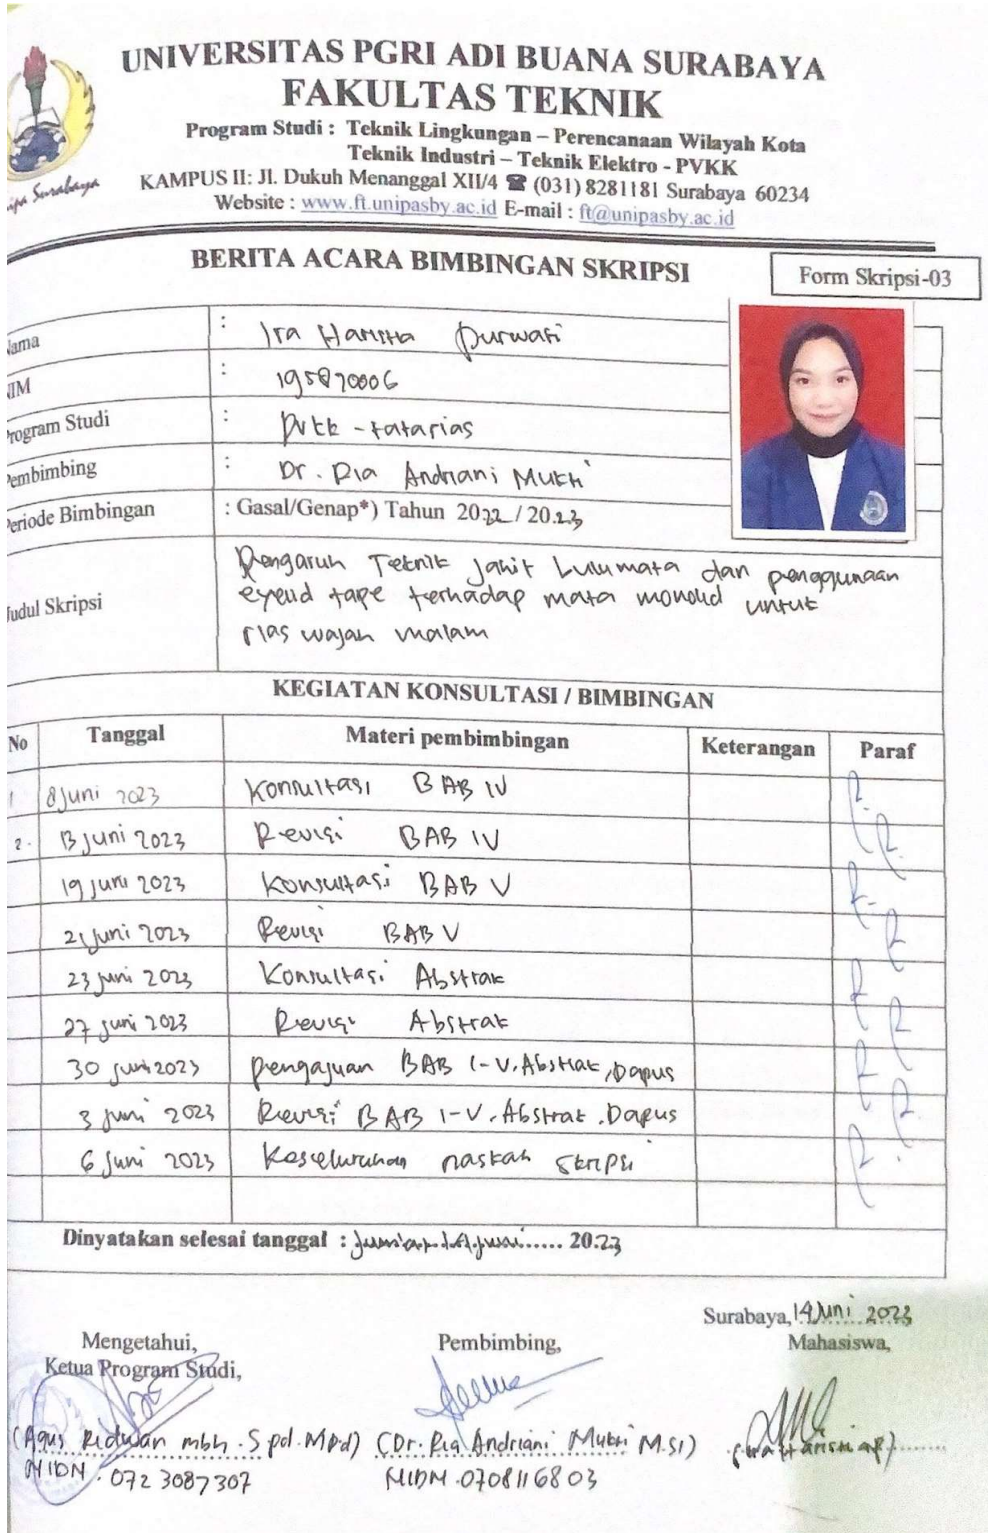 UNIVERSITAS PGRI ADI BUANA SURABAYA
FAKULTAS TEKNIK
Program Studi : Teknik Lingkungan – Perencanaan Wilayah Kota
Teknik Industri – Teknik Elektro - PVKK
KAMPUS II: Jl. Dukuh Menanggal XII/4 ☎ (031) 8281181 Surabaya 60234
Website : www.ft.unipasby.ac.id E-mail : ft@unipasby.ac.id
ipa Surabaya
BERITA ACARA BIMBINGAN SKRIPSI
Form Skripsi-03
ama : Ira Harista Purwati
IM : 195870006
rogram Studi : PVKK - tatarias
embimbing : Dr. Ria Andriani Mukti
eriode Bimbingan : Gasal/Genap*) Tahun 2022 / 20.23
udul Skripsi
Pengaruh Teknik jahit bulumata dan penggunaan
eyelid tape terhadap mata monolid untuk
rias wajah malam
KEGIATAN KONSULTASI / BIMBINGAN
No Tanggal Materi pembimbingan Keterangan Paraf
1 8 Juni 2023 Konsultasi BAB IV
2. 13 Juni 2023 Revisi BAB IV
19 Juni 2023 Konsultasi BAB V
21 Juni 2023 Revisi BAB V
23 Juni 2023 Konsultasi Abstrak
27 Juni 2023 Revisi Abstrak
30 Juni 2023 Pengajuan BAB I-V. Abstrak, Dapus
3 Juni 2023 Revisi BAB I-V. Abstrak. Dapus
6 Juni 2023 Keseluruhan naskah Skripsi
Dinyatakan selesai tanggal : ..... 20.23
Surabaya, 14 Juni 2023
Mengetahui, Pembimbing, Mahasiswa,
Ketua Program Studi,
(Agus Ridwan mbh. S pd. M.Pd) (Dr. Ria Andriani Mukti M.Si)
NIDN. 0723087307 NIDN. 0708116803